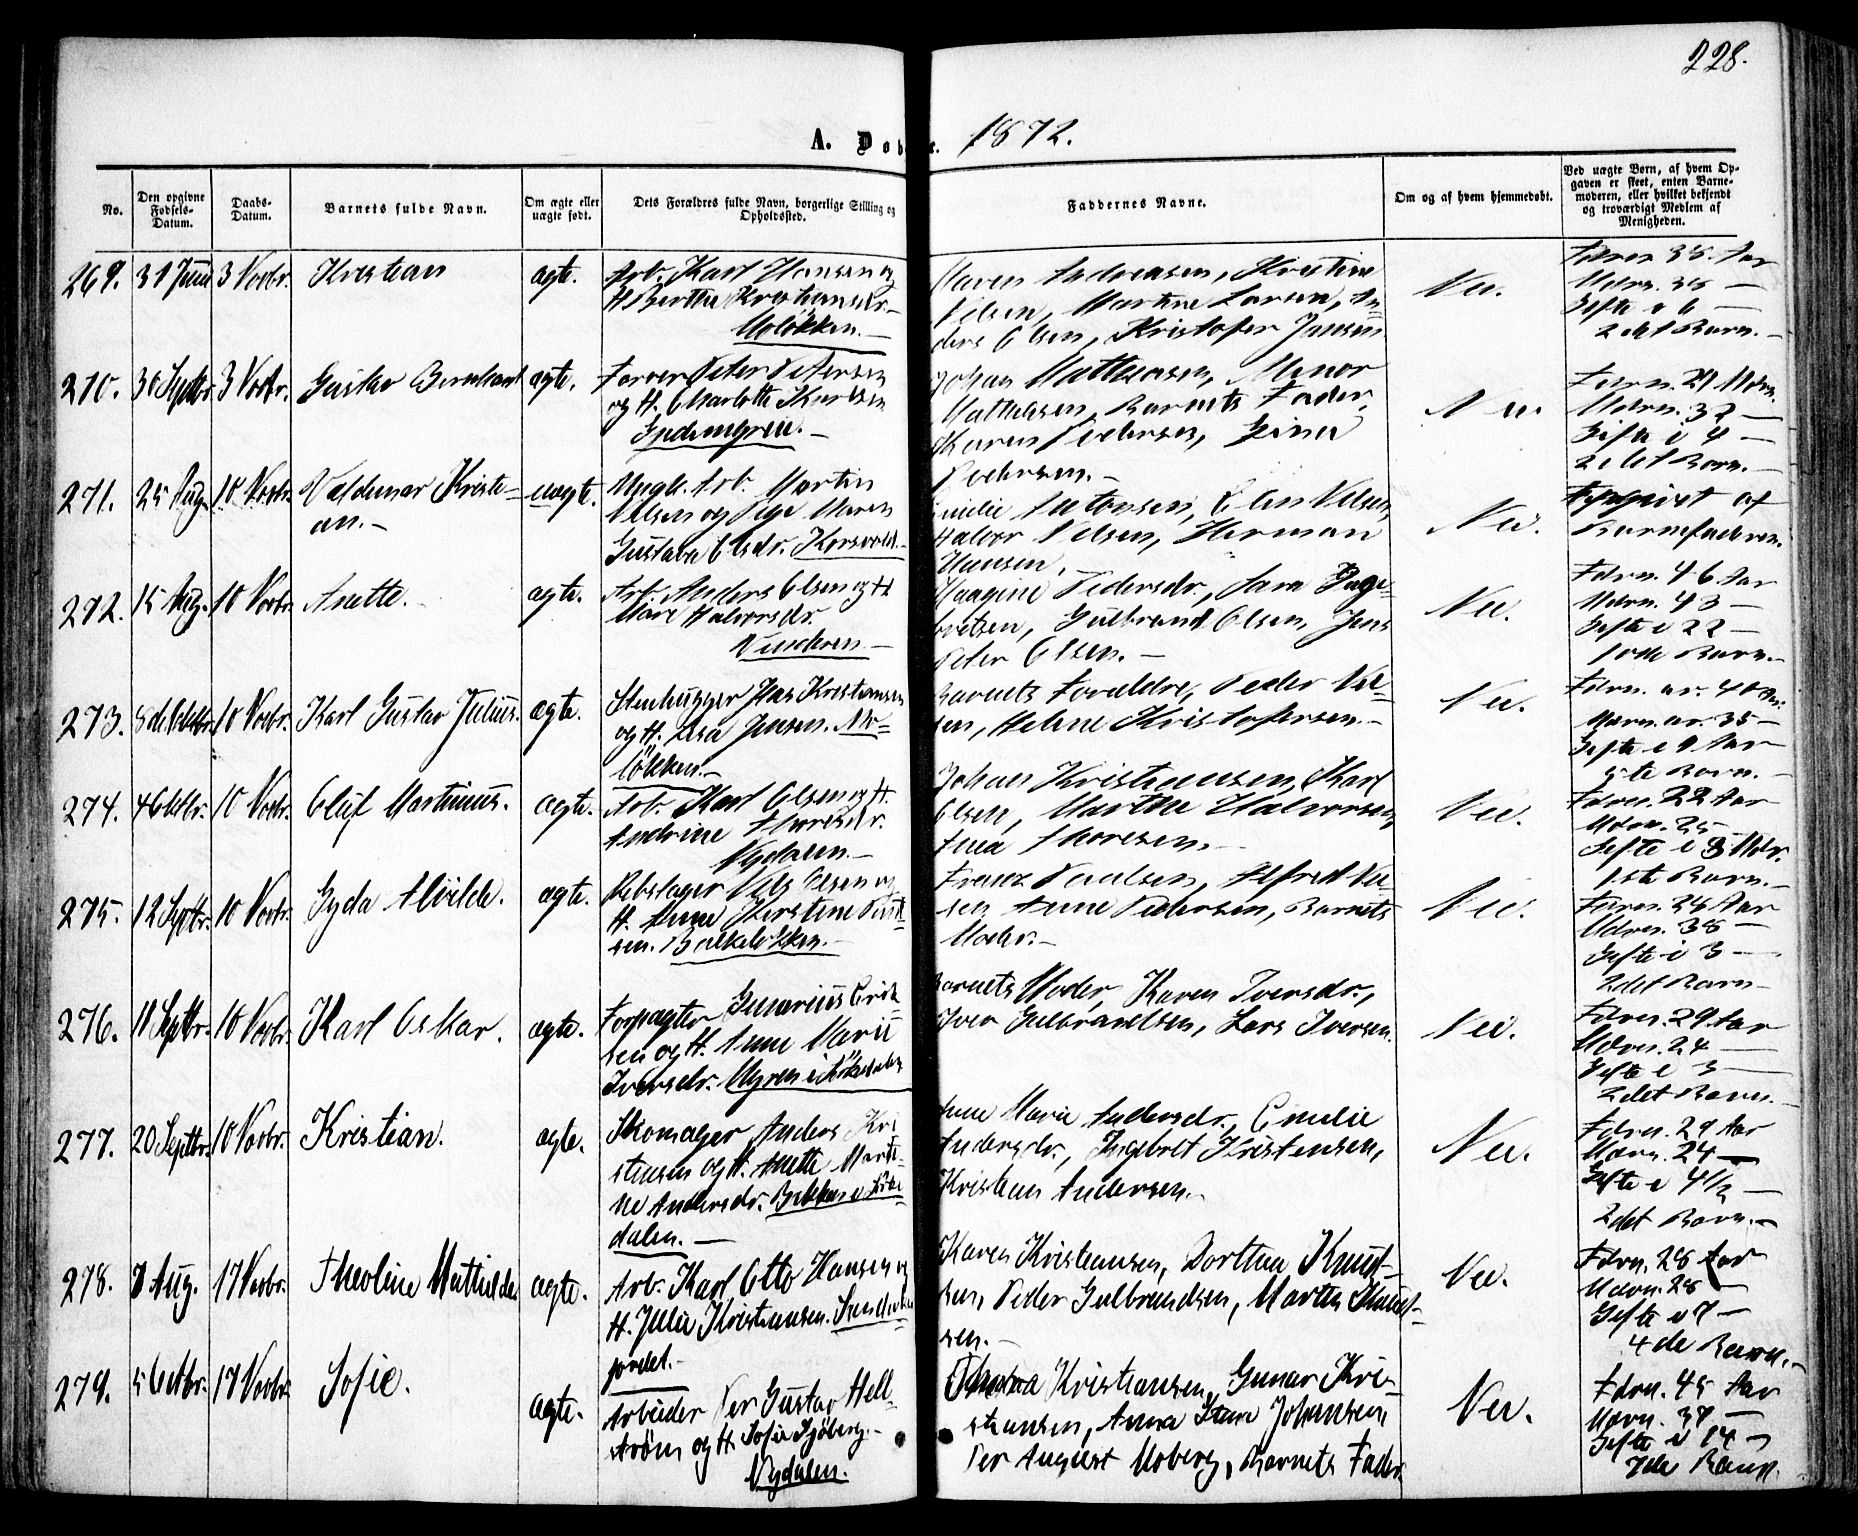 228.
A. Døbte. 1872.
No.
Den opgivne Fødsels-Datum.
Daabs-Datum.
Barnets fulde Navn.
Om ægte eller uægte født.
Dets Forældres fulde Navn, borgerlige Stilling og Opholdssted.
Faddernes Navne.
Om og af hvem hjemmedøbt.
Ved uægte Børn, af hvem Opgaven er skeet, enten Barnemoderen, eller hvilket bekjendt og troværdigt Medlem af Menigheden.
269. 31 Juni 3 Novbr. Kristian ægte. Arb. Karl Hansen og
H. Berthe Kristiansdr.
Møløkken.
Maren Andreasen, Kristine
Nilsen, Martine Larsen, An-
ders Olsen, Kristofer Jansen
Nei.
Fdrn. 35 Aar
Mdrn. 35 —
Gifte i 6 —
2det Barn.
270. 30 Septbr. 3 Novbr. Gustav Bernhard ægte. Farver Peter Petersen
og H. Charlotte Karlsen
Johan Matthiasen,
Matthisen, Barnets Fader,
Karen Pedersen, Gina
Pedersen.
Nei.
Mdrn. 32 —
Gifte i 4 —
2det Barn.
271. 25 Aug. 10 Novbr. Valdemar Kristi-
an.
uægte. Ungk. Arb. Martin
Nilsen og Pige Maren
Gustava Olsdr. Korsvold.
Emilie Antonsen, Elen Nilsen,
Halvor Nilsen, Herman
Hansen.
Nei.
Opgivet af
Barnefaderen.
272. 15 Aug. 10 Novbr. Anette. ægte. Arb. Anders Olsen og H.
Mari Halvorsdr.
Vinderen.
Maagine Pedersdr., Sara Inge-
bretsen, Gulbrand Olsen, Jens
Peter Olsen.
Nei.
Fdrn. 46 Aar
Mdrn. 43 —
Gifte i 22 —
10de Barn.
273. 8de Oktbr. 10 Novbr. Karl Gustav Julius. ægte. Stenhugger Jens Kristiansen
og H. Lisa Jensen. Mø-
løkken.
Barnets Forældre, Peder Nil-
sen, Helene Kristofersen.
Nei.
Fdrn. ar. 40
Mdrn. ar. 35 —
Gifte i 9 Aar
5te Barn.
274. 4 Oktbr. 10 Novbr. Oluf Martinius. ægte. Arb. Karl Olsen og H.
Andrine Thoresdr.
Nydalen.
Johan Kristiansen, Karl
Olsen, Marthe Halvorsen,
Anna Thoresen.
Nei.
Fdrn. 22 Aar
Mdrn. 25
Gifte i 8 Mdr.
1ste Barn.
275. 12 Septbr. 10 Novbr. Gyda Alvilde. ægte. Rebslager Nils Olsen og
H. Anne Kirstine
sen. Bakkeløkken.
Franz Paulsen, Alfred Nil-
sen, Anne Pedersen, Barnets
Moder.
Nei.
Fdrn. 24 Aar
Mdrn. 38 —
Gifte i 3 —
2det Barn
276. 18 Septbr. 10 Novbr. Karl Oskar. ægte. Forpagter Gunerius Erik
sen og H. Anne Marie
Iversdr. Myren i Sørkedalen
Barnets Moder, Karen Iversdr.,
Iver Gulbrandsen, Lars Iversen.
Nei.
Fdrn. 29 Aar
Mdrn. 24 —
Gifte i 3 —
2det Barn.
277. 20 Septbr. 10 Novbr. Kristian. ægte. Skomager Anders Kri
stensen og H. Anette Marti-
ne Andersdr. Bakken i Sørke
dalen.
Anne Marie Andersdr., Emilie
Andersdr., Ingebret Kristensen,
Kristian Andersen.
Nei.
Fdrn. 29 Aar
Mdrn. 24 —
Gifte i 4½ —
2det Barn.
278. 7 Aug. 17 Novbr. Theoline Mathilde ægte. Arb. Karl Otto Hansen og
H. Julie Kristiansen. Sander
jordet.
Karen Kristiansen, Dorthea Knud-
sen, Peder Gulbrandsen, Martin Knud-
sen.
Nei.
Fdrn. 28 Aar
Mdrn. 28 —
Gifte i 7 —
4de Barn.
279. 5 Oktbr. 17 Novbr. Sofie. ægte. Arbeider Per Gustav Hell-
strøm og H. Sofie Sjöberg.
Nydalen.
Kristiansen, Gunar Kri-
stiansen, Anna Stina Johansen,
Per August Moberg, Barnets Fader.
Nei.
Fdrn. 45 Aar
Mdrn. 37 —
Gifte i 14 —
7de Barn.